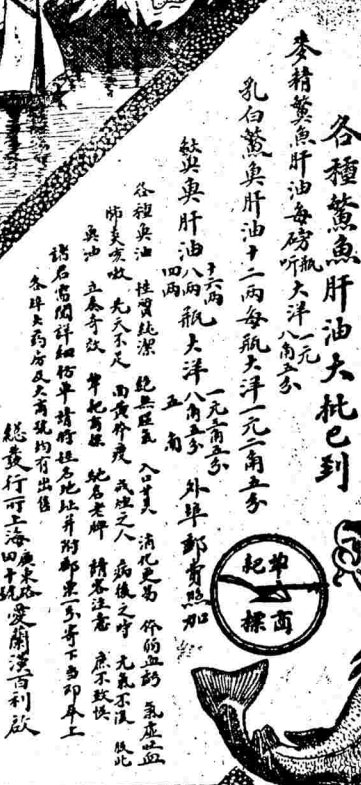 各種鱉魚肝油大批已到
麥精鱉魚肝油每磅瓶大洋一元
听 八角五分
乳白鱉魚肝油十二両每瓶大洋一元二角五分
魚肝油
十六両
八両瓶大洋
四両
一元三角五分
八角五分
五角
外埠郵費照加
各種魚油 性質純潔 絕無腥氣 入口甘美 消化更易 你的血虧 氣虛吐血
肺炎咳嗽 先天不足 面黃 瘦 之人 病後之時 元氣不復 服此
魚油 立奏奇效 商標 馳名老牌 請各注意 庶不致悞
諸君需閱詳細仿單請將姓名地址并附郵票一分寄下當即奉上
各埠大药房及大商號均有出售
總發行所上海廣東路
四十號
愛蘭漢百利啟
商標